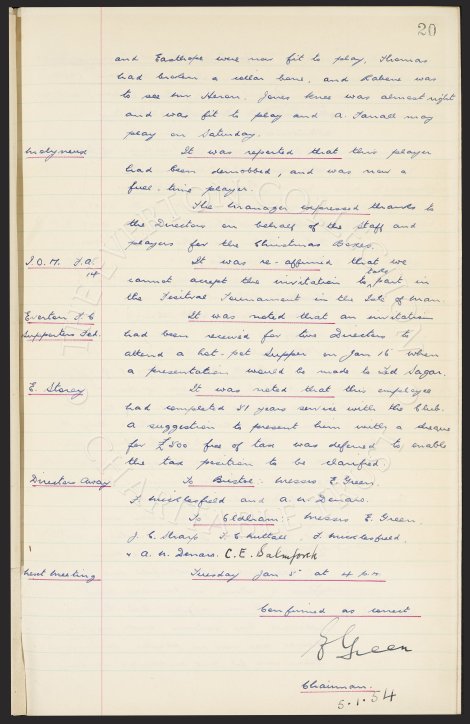 20
and Easthope were now fit to play, Thomas
had broken a collar bone, and Labone was
to see Mr Heron. Jones knee was almost right
and was fit to play and A. Farrall may
play on Saturday.
It was reported that this player
had been demobbed, and was now a
full-time player.
The Manager expressed thanks to
the Directors on behalf of the Staff and
players for the Christmas Boxes.
I.O.M. F.A. It was re-affirmed that we
cannot accept the invitation to take part in
the Festival Tournament in the Isle of Man.
Everton F.C It was noted that an invitation
Supporters Fed. had been received for two Directors to
attend a hot-pot Supper on Jan 16 when
a presentation would be made to Ted Sagar.
E. Storey It was noted that this employee
had completed 31 years service with the Club.
A suggestion to present him with a cheque
for £500 free of tax was deferred to enable
the tax position to be clarified.
Directors Away To Bristol: Messrs E. Green,
F. Micklesfield and A. W. Denaro.
To Oldham: Messrs E. Green
J. C. Sharp T. C. Nuttall F. Micklesfield
& A. W. Denaro. C. E. Balmforth
Next Meeting Tuesday Jan 5 at 4 p.m.
Confirmed as correct
E Green
Chairman.
5.1.54